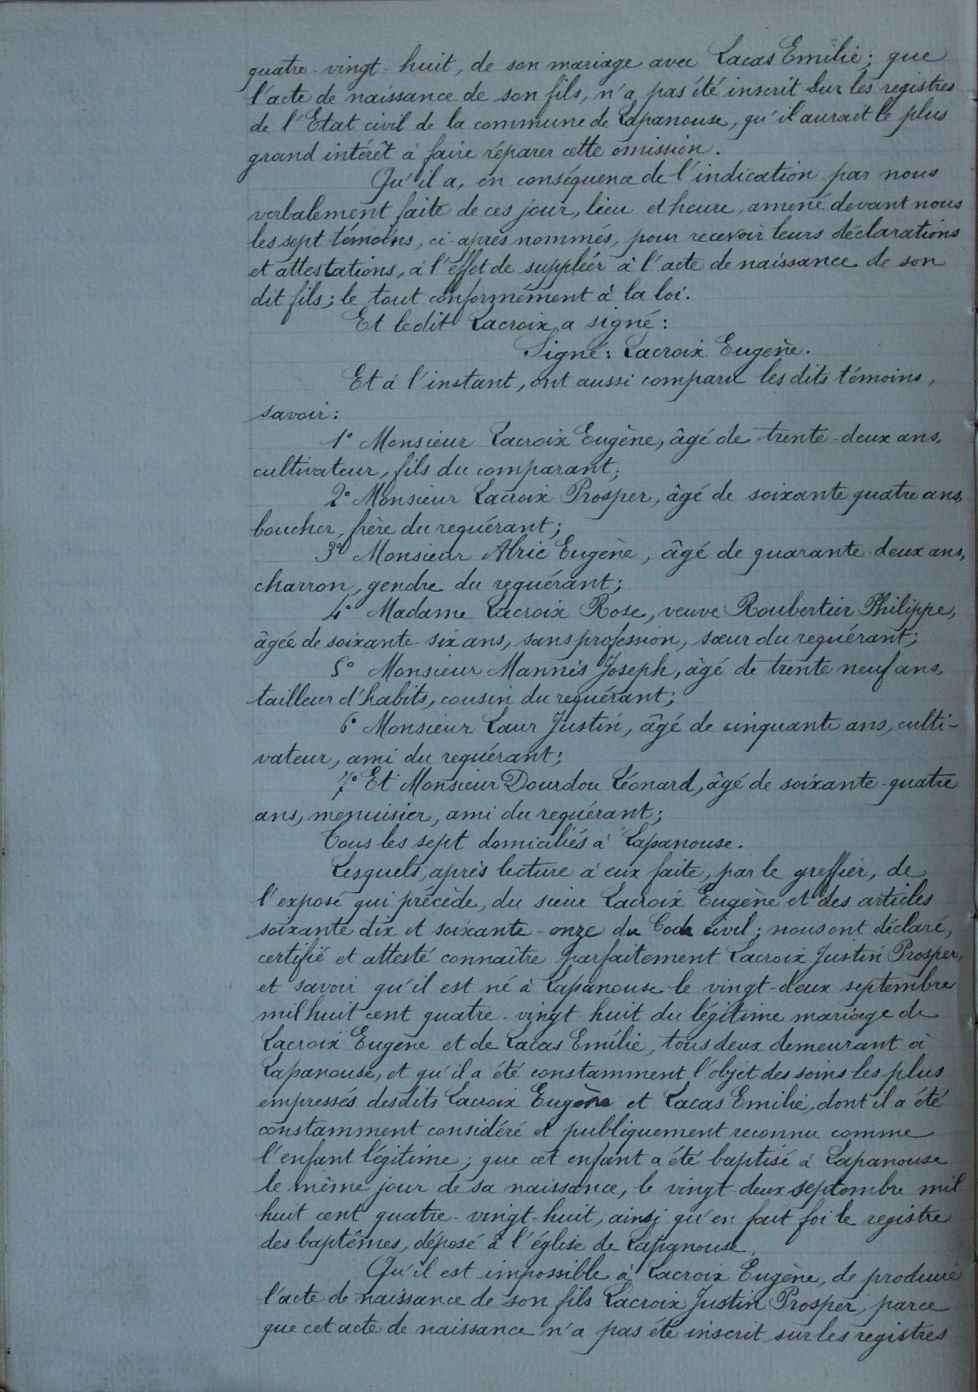 quatre-vingt-huit, de son mariage avec Lacas Emilie; que
l'acte de naissance de son fils, n'a pas été inscrit sur les registres
de l'Etat civil de la commune de Lapanouse, qu'il aurait le plus
grand intérêt à faire réparer cette omission.
Qu'il a, en conséquence de l'indication par nous
verbalement faite de ces jour, lieu et heure, amené devant nous
les sept témoins, ci-après nommés, pour recevoir leurs déclarations
et attestations, à l'effet de suppléer à l'acte de naissance de son
dit fils; le tout conformément à la loi.
Et ledit Lacroix a signé:
Signé: Lacroix Eugène.
Et à l'instant, ont aussi comparu les dits témoins,
savoir:
1° Monsieur Lacroix Eugène, âgé de trente-deux ans,
cultivateur, fils du comparant;
2° Monsieur Lacroix Prosper, âgé de soixante quatre ans,
boucher, frère du requérant;
3° Monsieur Alric Eugène, âgé de quarante-deux ans,
charron, gendre du requérant;
4° Madame Lacroix Rose, veuve Roubertier Philippe,
âgée de soixante-six ans, sans profession, sœur du requérant;
5° Monsieur Mannis Joseph, âgé de trente neuf ans,
tailleur d'habits, cousin du requérant;
6° Monsieur Laur Justin, âgé de cinquante ans, culti-
vateur, ami du requérant;
7° Et Monsieur Dourdou Léonard, âgé de soixante-quatre
ans, menuisier, ami du requérant;
Tous les sept domiciliés à Lapanouse.
Lesquels, après lecture à eux faite, par le greffier, de
l'exposé qui précède, du sieur Lacroix Eugène et des articles
soixante dix et soixante-onze du Code civil; nous ont déclaré,
certifié et attesté connaître parfaitement Lacroix Justin Prosper,
et savoir qu'il est né à Lapanouse le vingt-deux septembre
mil huit cent quatre-vingt huit du légitime mariage de
Lacroix Eugène et de Lacas Emilie, tous deux demeurant à
Lapanouse, et qu'il a été constamment l'objet des soins les plus
empressés desdits Lacroix Eugène et Lacas Emilie, dont il a été
constamment considéré et publiquement reconnu comme
l'enfant légitime; que cet enfant a été baptisé à Lapanouse
le même jour de sa naissance, le vingt-deux septembre mil
huit cent quatre-vingt-huit, ainsi qu'en fait foi le registre
des baptêmes, déposé à l'église de Lapanouse.
Qu'il est impossible à Lacroix Eugène, de produire
l'acte de naissance de son fils Lacroix Justin Prosper, parce
que cet acte de naissance n'a pas été inscrit sur les registres